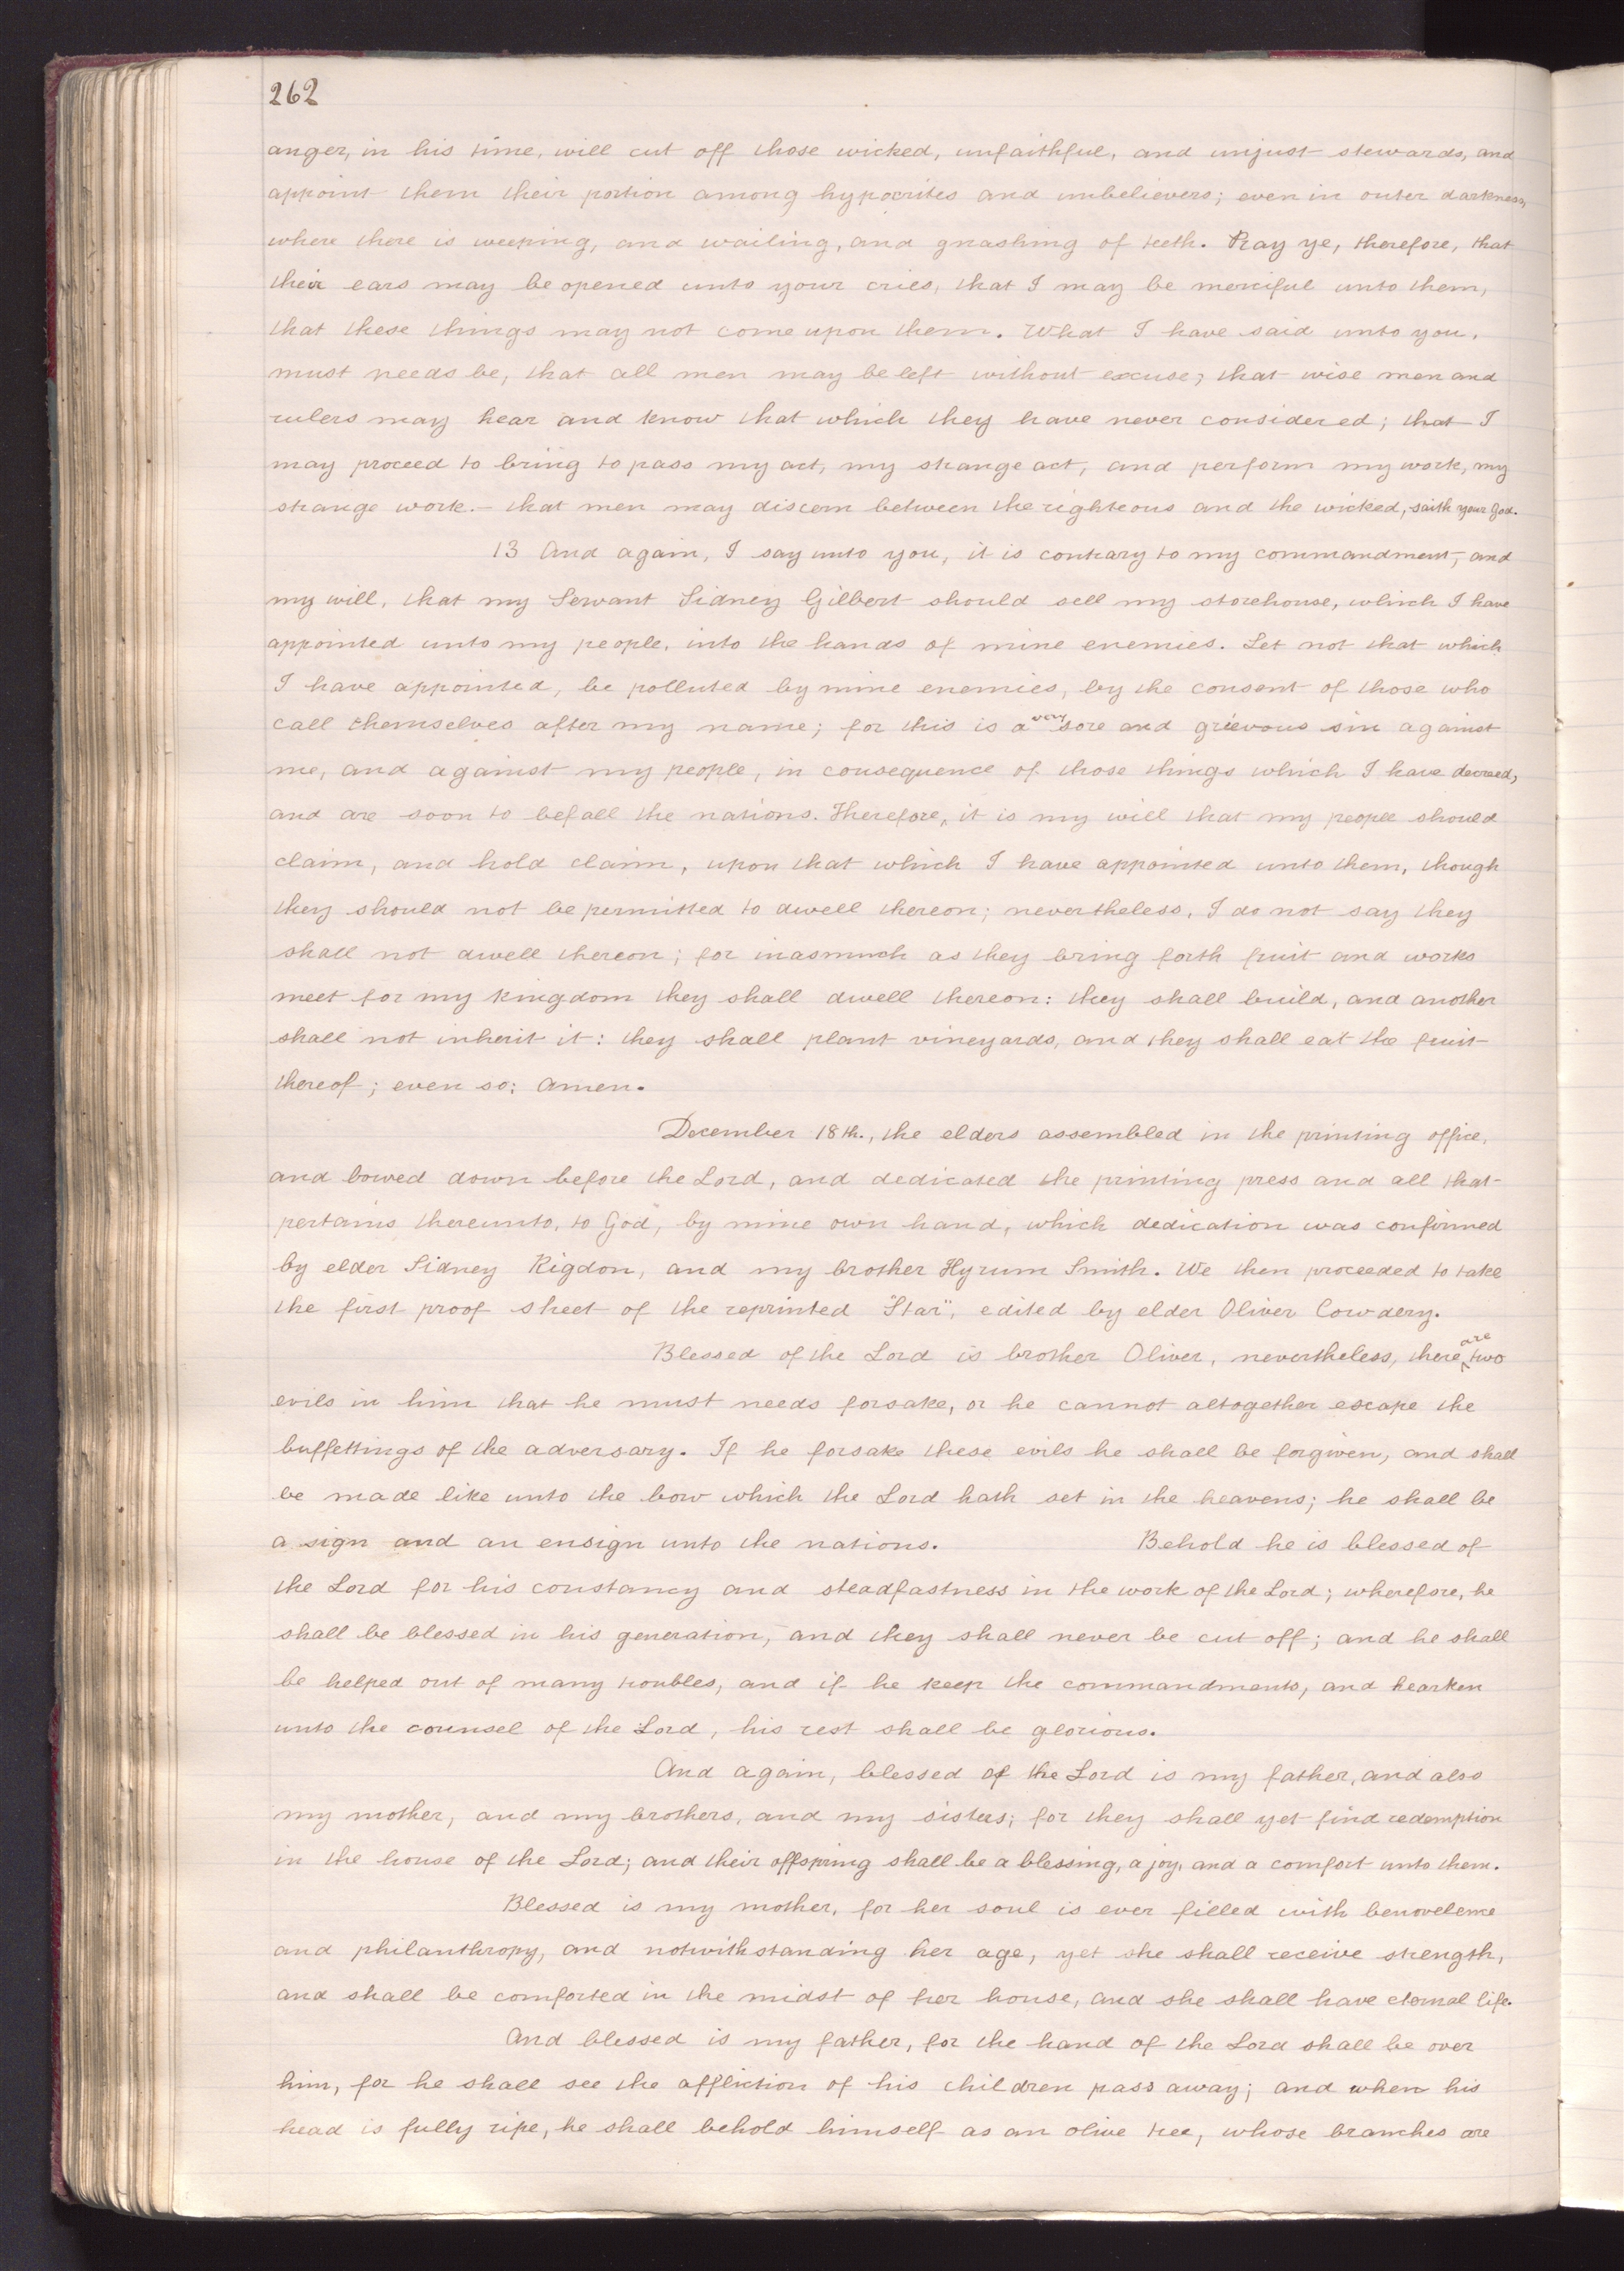 262
anger, in his time, will cut off those wicked, unfaithful, and unjust stewards, and
appoint them their portion among hypocrites and unbelievers; even in outer darkness,
where there is weeping, and wailing, and gnashing of teeth. Pray ye, therefore, that
their ears may be opened unto your cries, that I may be merciful unto them,
that these things may not come upon them. What I have said unto you,
must needs be, that all men may be left without excuse; that wise men and
rulers may hear and know that which they have never considered; that I
may proceed to bring to pass my act, my strange act, and perform my work, my
strange work.— that men may discern between the righteous and the wicked, saith your God.
13 And again, I say unto you, it is contrary to my commandment, and
my will, that my Servant Sidney Gilbert should sell my storehouse, which I have
appointed unto my people, into the hands of mine enemies. Let not that which
I have appointed, be polluted by mine enemies, by the consent of those who
call themselves after my name; for this is a very sore and grievous sin against
me, and against my people, in consequence of those things which I have decreed,
and are soon to befall the nations. Therefore, it is my will that my people should
claim, and hold claim, upon that which I have appointed unto them, though
they should not be permitted to dwell thereon; nevertheless, I do not say they
shall not dwell thereon; for inasmuch as they bring forth fruit and works
meet for my kingdom they shall dwell thereon: they shall build, and another
shall not inherit it: they shall plant vineyards, and they shall eat the fruit
thereof; even so: Amen.
December 18th., the elders assembled in the printing office,
and bowed down before the Lord, and dedicated the printing press and all that
pertains thereunto, to God, by mine own hand, which dedication was confirmed
by elder Sidney Rigdon, and my brother Hyrum Smith. We then proceeded to take
the first proof sheet of the reprinted "Star", edited by elder Oliver Cowdery.
Blessed of the Lord is brother Oliver, nevertheless, there are two
evils in him that he must needs forsake, or he cannot altogether escape the
buffettings of the adversary. If he forsake these evils he shall be forgiven, and shall
be made like unto the bow which the Lord hath set in the heavens; he shall be
a sign and an ensign unto the nations. Behold he is blessed of
the Lord for his constancy and steadfastness in the work of the Lord; wherefore, he
shall be blessed in his generation, and they shall never be cut off; and he shall
be helped out of many troubles, and if he keep the commandments, and hearken
unto the counsel of the Lord, his rest shall be glorious.
And again, blessed of the Lord is my father, and also
my mother, and my brothers, and my sisters; for they shall yet find redemption
in the house of the Lord; and their offspring shall be a blessing, a joy, and a comfort unto them.
Blessed is my mother, for her soul is ever filled with benovelence
and philanthropy, and notwithstanding her age, yet she shall receive strength,
and shall be comforted in the midst of her house, and she shall have eternal life.
And blessed is my father, for the hand of the Lord shall be over
him, for he shall see the affliction of his children pass away; and when his
head is fully ripe, he shall behold himself as an olive tree, whose branches are